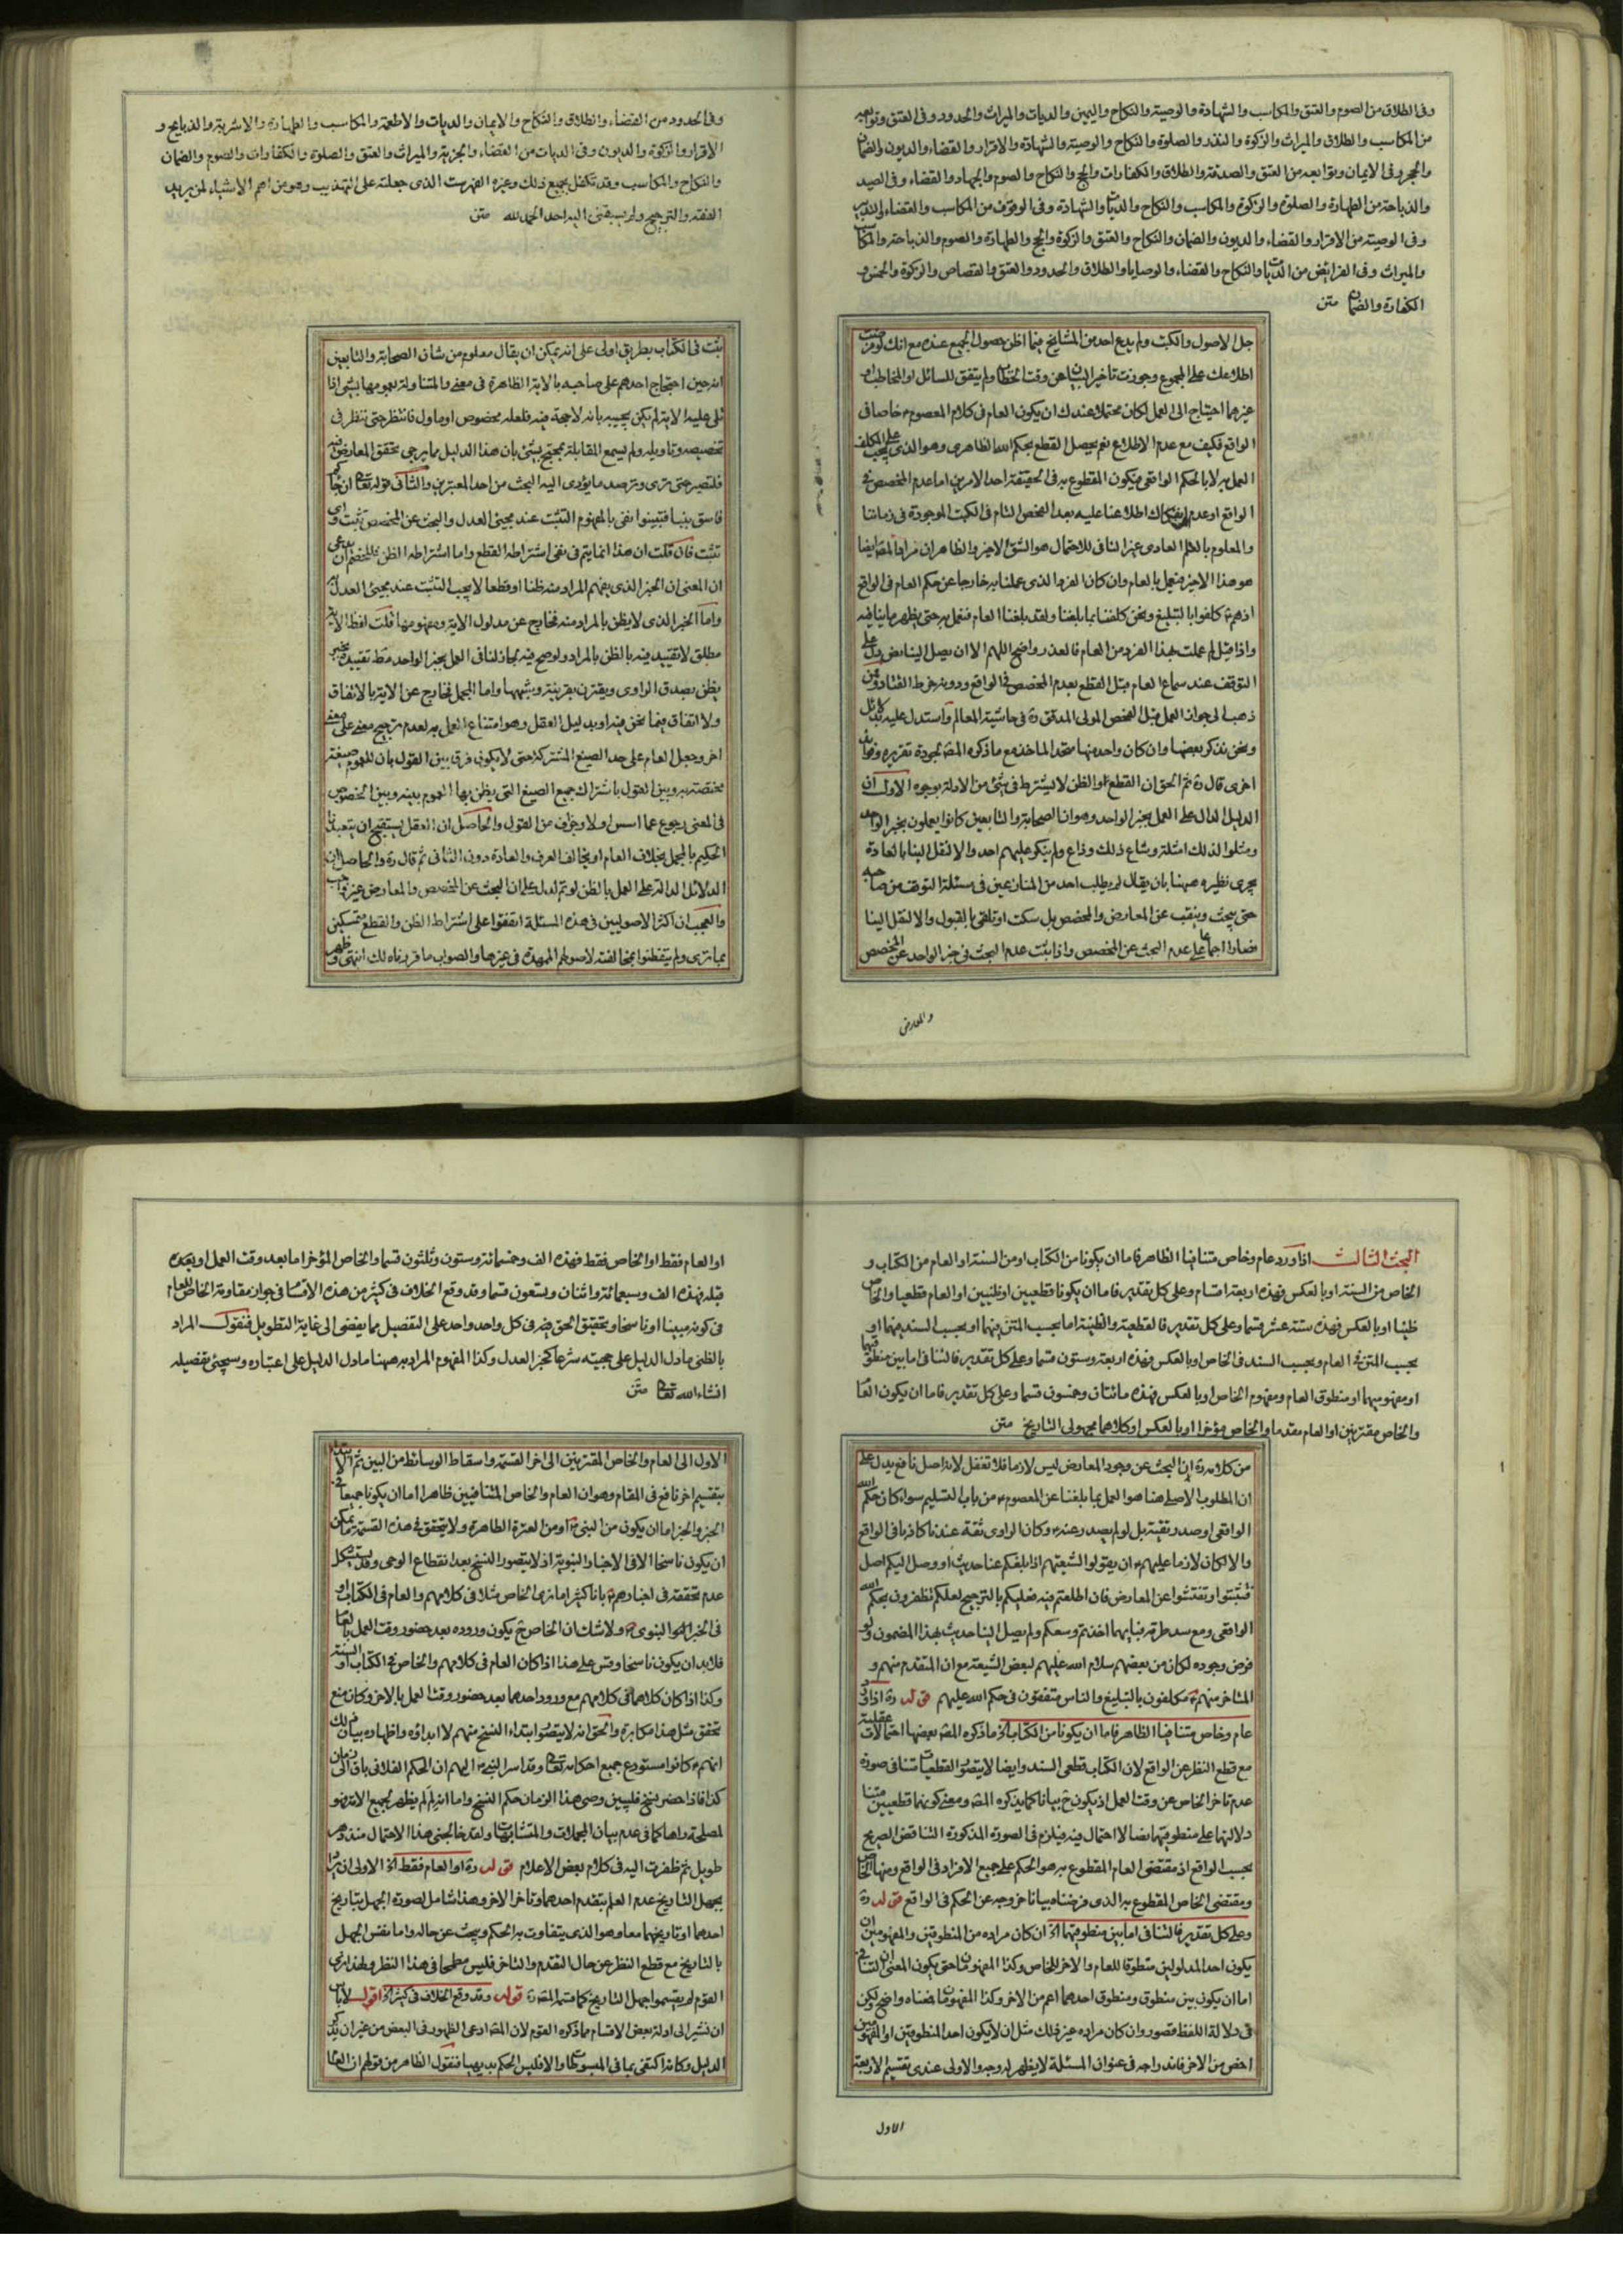 وفى الطلاق من الصوم والعتق والمكاسب والشهادة والوصية والنكاح واليمين والديات والميراث والحدود وفى العتق وتوابعه
من المكاسب والطلاق والميراث والزكوة والنذر والصلوة والنكاح والوصية والشهادة والاقرار والقضاء والديون والضمان
والحجر وفى الايمان وتوابعه من العتق والصدقة والطلاق والكفارات والحج والنكاح والصوم والجهاد والقضاء وفى الصيد
والذباحة من الطهارة والصلوة والزكوة والمكاسب والنكاح والديات والشهادة وفى الوقوف من المكاسب والقضاء
وفى الوصية من الاقرار والقضاء والديون والضمان والنكاح والعتق والزكوة والحج والطهارة والصوم والذباحة والمكاسب
والميراث وفى الفرائض من الديات والنكاح والقضاء والوصايا والطلاق والحدود والعتق والقصاص والزكوة والخمس و
الكفارة والضمان متن
جل الاصول والكتب ولم يدع احد من المشايخ فيما اظن حصول الجميع عنده مع انك لو فرضت
اطلاعك على المجموع وجوزت تاخير البيان عن وقت الخطاب ولم يتفق للسائل او المخاطب او
غيرهما احتياج الى العمل لكان محتملا عندك ان يكون العام فى كلام المعصوم خاصا فى
الواقع فكيف مع عدم الاطلاع نعم يحصل القطع بحكم الله الظاهرى وهو الذى يجب على المكلف
العمل به لا بالحكم الواقعى فيكون المقطوع به فى الحقيقة احد الامرين اما عدم المخصص فى
الواقع او عدم اطلاعنا عليه بعد الفحص التام فى الكتب الموجودة فى زماننا
والمعلوم بالعلم العادى عن النافى للاحتمال هو الشق الاخير والظاهر ان مراد المص ايضا
هو هذا الاخير فنعمل بالعام وان كان الفرد الذى عملنا به خارجا عن حكم العام فى الواقع
اذ هم كلفوا بالتبليغ ونحن كلفنا بما بلغنا ولقد بلغنا العام فنعمل به حتى يظهر ما ينافيه
واذا قيل لم عملت بهذا الفرد من العام فالعذر واضح اللهم الا ان يصل الينا نص دل على
التوقف عند سماع العام قبل القطع بعدم المخصص فى الواقع ودونه خرط القتاد وممن
ذهب الى جواز العمل قبل الفحص المولى المدقق ره فى حاشية المعالم واستدل عليه بدلائل
ونحن نذكر بعضها وان كان واحد منها متحد الماخذ مع ما ذكره المص لجودة تقريره وفوائد
اخرى قال ره ثم الحق ان القطع او الظن لا يشترط فى شئ من الادلة بوجوه الاول ان
الدليل الدال على العمل بخبر الواحد وهو ان الصحابة والتابعين كانوا يعملون بخبر الواحد
ومثلوا لذلك امثلة وشاع ذلك وذاع ولم ينكر عليهم احد والا لنقل الينا بالعادة
يجرى نظيره ههنا بان يقال لم يطلب احد من المتنازعين فى مسئلة التوقف من صاحبه
حتى يبحث وينقب عن المعارض والمخصص بل سكت او تلقى بالقبول والا لنقل الينا
فصار اجماعا على عدم البحث عن المخصص واذا ثبت عدم البحث فى خبر الواحد عن المخصص
والمعارض
وفى الحدود من القضاء والطلاق والنكاح والايمان والديات والاطعمة والمكاسب والطهارة والاشربة والذبايح و
الاقرار والزكوة والديون وفى الديات من القضاء والجزية والميراث والعتق والصلوة والكفارات والصوم والضمان
والنكاح والمكاسب وقد تكفل بجميع ذلك وغيره الفهرست الذى جعلته على التهذيب وهو من اهم الاشياء لمن يريد
الفقه والترجيح ولم يسبقنى اليه احد الحمد لله متن
ثبت فى الكتاب بطريق اولى على انه يمكن ان يقال معلوم من شان الصحابة والتابعين
انه حين احتجاج احدهم على صاحبه بالاية الظاهرة فى معنى والمتناولة بعمومها لشئ اذا
تلى عليه الاية لم يكن يجيبه بانه لا حجة فيه فلعله مخصوص او ماول فانتظر حتى ننظر فى
تخصيصه وتاويله ولم يسمع المقابلة لمحتج بشئ بان هذا الدليل مما يرجى تحقق المعارض فيه
فلتصبر حتى نرى ونترصد ما يؤدى اليه البحث من احد المعتبرين والثانى قوله تعالى ان جاءكم
فاسق بنبا فتبينوا نفى بالمفهوم التثبت عند مجيئ العدل والبحث عن المخصص تثبت واى
تثبت فان قلت ان هذا انما يتم فى نفى اشتراطه القطع واما اشتراطه الظن فللخصم ان يدعى
ان المعنى ان الخبر الذى يفهم المراد منه ظنا او قطعا لا يجب التثبت عند مجيئ العدل به
واما الخبر الذى لا يظن بالمراد منه فخارج عن مدلول الاية ومفهومها قلت لفظ الاية
مطلق لا تقييد فيه بالظن بالمراد ولو صح فيه لجاز لنا فى العمل بخبر الواحد فقط تقييده بخبر
يظن بصدق الراوى ويقترن بقرينة وشبهها واما المجمل فخارج عن الاية بالاتفاق
ولا اتفاق فيما نحن فيه او بدليل العقل وهو امتناع العمل به لعدم ترجيح معنى على معنى
اخر وجعل العام على حد الصيغ المشتركة حتى لا يكون فرق بين القول بان للعموم صيغة
مختصة به وبين القول باشتراك جميع الصيغ التى يظن بها العموم بينه وبين الخصوص
فى المعنى رجوع عما اسس اولا وخرف من القول والحاصل ان العقل يستقبح ان يتعبدنا
الحكيم بالمجمل بخلاف العام او يخالف العرف والعادة دون الثانى ثم قال ره والحاصل ان
الدلائل الدالة على العمل بالظن لو تم لدل على ان البحث عن المخصص والمعارض غير واجب
والعجب ان اكثر الاصوليين فى هذه المسئلة اتفقوا على اشتراط الظن والقطع متمسكين
بما ترى ولم يتفطنوا بمخالفته لاصولهم الممهدة فى غيرها والصواب ما قررناه لك انتهى وظهر
البحث الثالث اذا ورد عام وخاص متنافيا الظاهر فاما ان يكونا من الكتاب او من السنة او العام من الكتاب و
الخاص من السنة او بالعكس فهذه اربعة اقسام وعلى كل تقدير فاما ان يكونا قطعيين او ظنيين او العام قطعيا والخاص
ظنيا او بالعكس فهذه ستة عشر قسما وعلى كل تقدير فالقطعية والظنية اما بحسب المتن فيهما او بحسب السند فيهما او
بحسب المتن فى العام وبحسب السند فى الخاص او بالعكس فهذه اربعة وستون قسما وعلى كل تقدير فالتنافى اما بين منطوقيهما
او مفهوميهما او منطوق العام ومفهوم الخاص او بالعكس فهذه مائتان وخمسون قسما وعلى كل تقدير فاما ان يكون العام
والخاص مقترنين او العام مقدما والخاص مؤخرا او بالعكس او كلاهما مجهولى التاريخ متن
من كلامه ره ان البحث عن وجود المعارض ليس لازما فلا تغفل لانه اصل نافع يدل على
ان المطلوب الاصلى هنا هو العمل بما بلغنا عن المعصوم من باب التسليم سواء كان حكم الله
الواقعى او صدر تقية بل لو لم يصدر عنه وكان الراوى ثقة عندنا كاذبا فى الواقع
والا لكان لازما عليهم ان يقولوا لشيعتهم اذا بلغكم عنا حديث او وصل اليكم اصل
فتثبتوا وتفتشوا عن المعارض فان اطلعتم فيه فعليكم بالترجيح لعلكم تظفرون بحكم الله
الواقعى ومع سد طرقه فبايهما اخذتم وسعكم ولم يصل الينا حديث بهذا المضمون ولو
فرض وجوده لكان من بعضهم سلام الله عليهم لبعض الشيعة مع ان المتقدم منهم و
المتاخر منهم مكلفون بالتبليغ والناس متفقون فى حكم الله عليهم قوله ره اذا ورد
عام وخاص متنافيا الظاهر فاما ان يكونا من الكتاب الخ ما ذكره المص بعضها احتمالات عقلية
مع قطع النظر عن الواقع لان الكتاب قطعى السند وايضا لا يتصور القطعيات تنافى صورة
عدم تاخر الخاص عن وقت العمل اذ يكون ح بيانا كما يذكره المص ومعنى كونهما قطعيين متنا
دلالتهما على منطوقيهما نصا لا احتمال فيه فيلزم فى الصورة المذكورة التناقض الصريح
بحسب الواقع اذ مقتضى العام المقطوع به هو الحكم على جميع الافراد فى الواقع ومنها الخاص
ومقتضى الخاص المقطوع به الذى فرضناه بيانا خروجه عن الحكم فى الواقع قوله ره
وعلى كل تقدير فالتنافى اما بين منطوقيهما الخ ان كان مراده من المنطوقين والمفهومين ان
يكون احد المدلولين منطوقا للعام والاخر للخاص وكذا المفهومان حتى يكون المعنى ان التنافى
اما ان يكون بين منطوق ومنطوق احدهما اعم من الاخر وكذا المفهومان فمعناه واضح ولكن
فى دلالة اللفظ قصور وان كان مراده غير ذلك مثل ان لا يكون احد المنطوقين او المفهومين
اخص من الاخر فاندراجه فى عنوان المسئلة لا يظهر له وجه والاولى عندى تقسيم الاربعة
الاول
او العام فقط او الخاص فقط فهذه الف وخمسمائة وستون وثلثون قسما والخاص المؤخر اما بعد وقت العمل او بعده
قبله فهذه الف وسبعمائة واثنان وتسعون قسما وقد وقع الخلاف فى كثير من هذه الاقسام فى جواز مقاومة الخاص للعام
فى كونه مبينا او ناسخا وتحقيق الحق فيه فى كل واحد واحد على التفصيل مما يفضى الى غاية التطويل فنقول المراد
بالظنى ما دل الدليل على حجيته شرعا كخبر العدل وكذا المفهوم المراد به ههنا ما دل الدليل على اعتباره وسيجئ تفصيله
انشاء الله تعالى متن
الاول الى العام والخاص المقترنين الى اخر القسمة واسقاط الوسائط من البين ثم الابتداء
بتقسيم اخر نافع فى المقام وهو ان العام والخاص المتنافيين ظاهرا اما ان يكونا جميعا فى
الخبر والخبر اما ان يكون من النبى او من العترة الطاهرة ولا يتحقق فى هذه القسمة ما يمكن
ان يكون ناسخا الا فى الاخبار النبوية اذ لا يتصور النسخ بعد انقطاع الوحى وقد يستشكل
عدم تحققه فى اخبارهم بانا كثيرا ما نرى الخاص مثلا فى كلامهم والعام فى الكتاب او
فى الخبر النبوى ولا شك ان الخاص ح يكون وروده بعد حضور وقت العمل بالعام
فلا بد ان يكون ناسخا وقس على هذا اذا كان العام فى كلامهم والخاص فى الكتاب او السنة
وكذا اذا كان كلاهما فى كلامهم مع ورود احدهما بعد حضور وقت العمل بالاخر وكان منع
تحقق مثل هذا مكابرة والحق انه لا يتصور ابتداء النسخ منهم لا ابداؤه واظهاره بيان ذلك
انهم كانوا مستودع جميع احكام الله تعالى وقد اسر النبى اليهم ان الحكم الفلانى باق الى زمان
كذا فاذا حضر ينسخ فليبين وصى هذا الزمان حكم النسخ واما انه لم لم يظهر لجميع الامة فهو
لمصلحة راها كما فى عدم بيان المجملات والمتشابهات ولقد خالجنى هذا الاحتمال منذ دهر
طويل ثم ظفرت اليه فى كلام بعض الاعلام قوله ره او العام فقط الخ الاولى ان يراد
بجهل التاريخ عدم العلم بتقدم احدهما وتاخر الاخر وهذا شامل لصورة الجهل بتاريخ
احدهما او تاريخهما معا وهو الذى يتفاوت به الحكم ويبحث عن حاله واما نفس الجهل
بالتاريخ مع قطع النظر عن حال التقدم والتاخر فليس مطمحا فى هذا النظر ولهذا ترى
القوم لم يقسموا جهل التاريخ كما قسمه المص ره قوله وقد وقع الخلاف فى كثير الخ اقول لا باس
ان نشير الى ادلة بعض الاقسام مما ذكره القوم لان المص ادعى الظهور فى البعض من غير ان يذكر
الدليل وكانه اكتفى بما فى المبسوطات والا فليس الحكم بديهيا فنقول الظاهر من قولهم ان العام